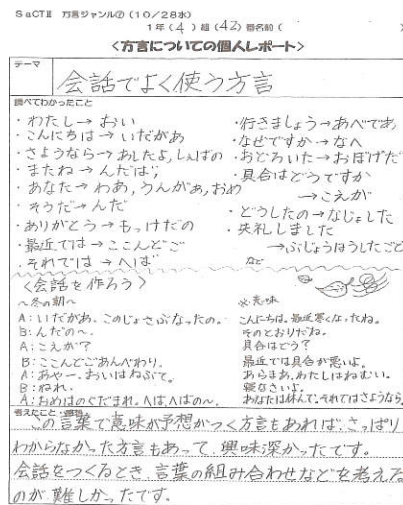 SaCTⅡ 方言ジャンル⑦(10/28水)
1年(4)組(42)番名前(
<方言についての個人レポート>
テーマ
会話でよく使う方言
調べてわかったこと
・わたし→おい
・こんにちは→いだがあ
・さようなら→あしたよ,しぇばの
・またね→んだば;
・あなた→わあ,うんがあ,おめ
・そうだ→んだ
・ありがとう→もっけだの
・最近では→ここんどご
・それでは→へば
・行きましょう→あべであ,
・なぜですか→なへ
・おどろいた→おぼげだ
・具合はどうですか
→こえが
・どうしたの→なじょした
・失礼しました
→ぶじょうほうしたごど
など
<会話を作ろう>
〜冬の朝〜
A:いだがあ、このじょさぶなったの。
B:んだの〜。
A:こえが?
B:ここんどごあんべわり。
A:あやー。おいはねぶて。
B:ねれ。
A:おめはのぐだまれ。へば、へばの〜。
※意味
こんにちは。最近寒くなったね。
そのとおりだね。
具合はどう?
最近では具合が悪いよ。
あらまあ、わたしはねむい。
寝なさいよ。
あなたは休んで。それではさようなら。
考えたこと・感想
この言葉で意味が予想がつく方言もあれば、さっぱり
わからなかった方言もあって、興味深かったです。
会話をつくるとき、言葉の組み合わせなどを考える
のが難しかったです。